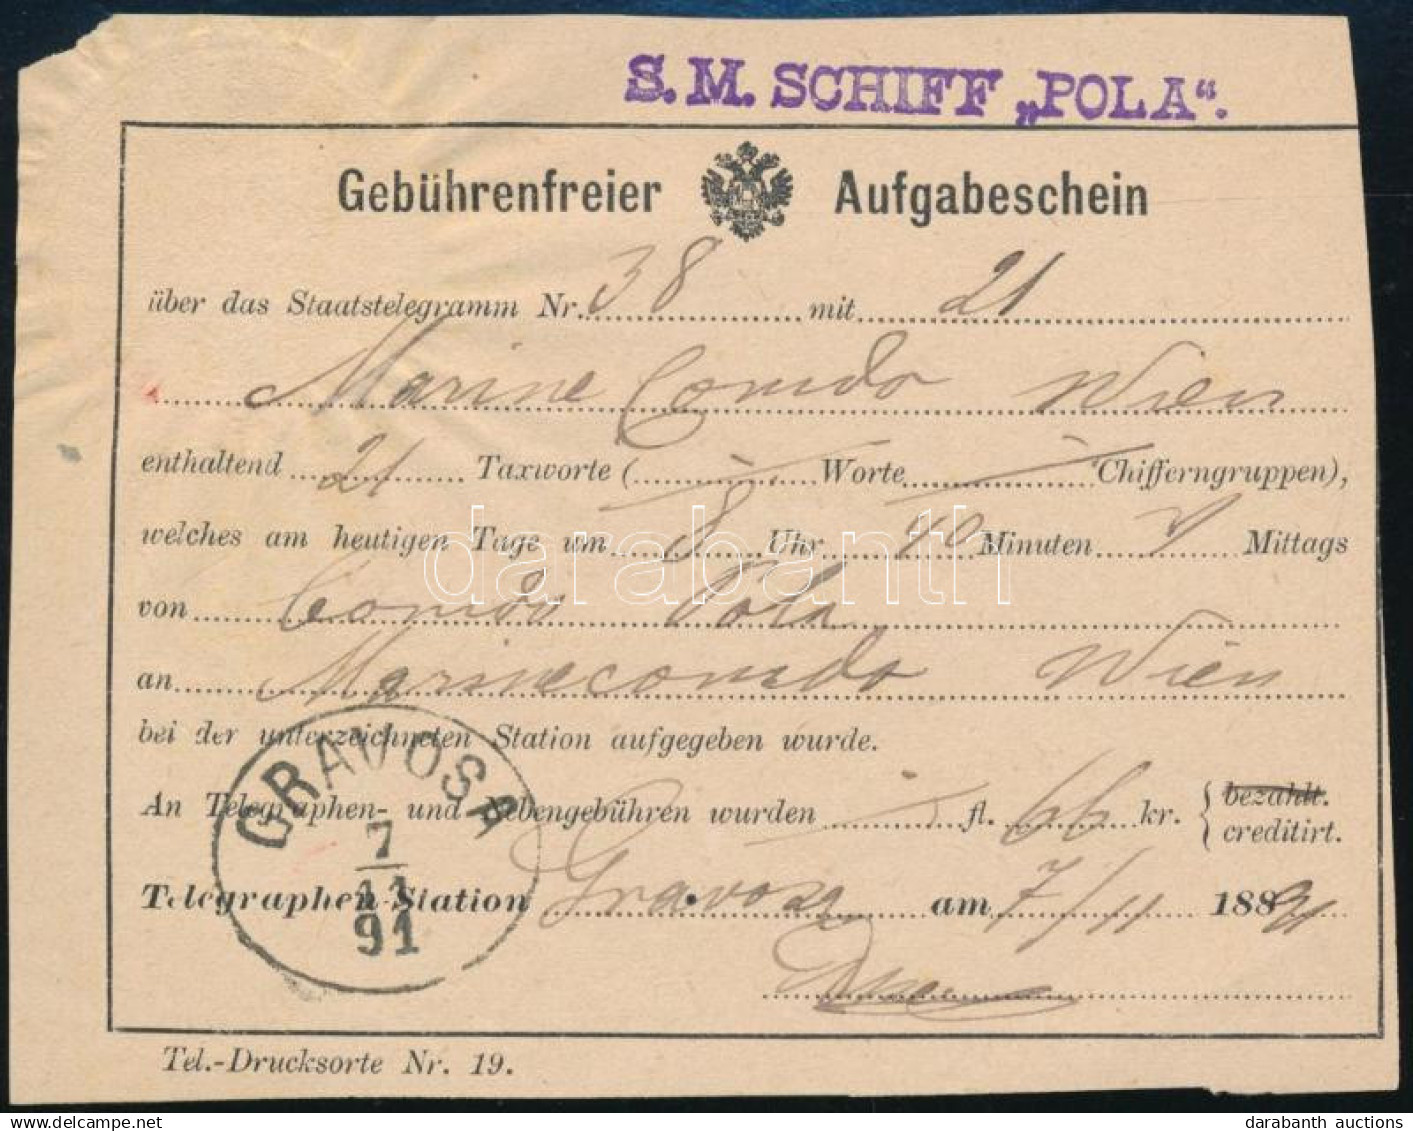 S. M. SCHIFF „POLA“.
Gebührenfreier Aufgabeschein
über das Staatstelegramm Nr. 38 mit 21
Marine Comdo Wien
enthaltend 21 Taxworte ( Worte Chifferngruppen),
welches am heutigen Tage um 8 Uhr 40 Minuten Mittags
von Comdo Pola
an Marinecomdo Wien
bei der unterzeichneten Station aufgegeben wurde.
An Telegraphen- und Nebengebühren wurden fl. 66 kr. { bezahlt.
creditirt.
Telegraphen-Station Gravosa am 7/11 188 91
GRAVOSA
7
11
91
Tel.-Drucksorte Nr. 19.
darabanth
darabanth auctions